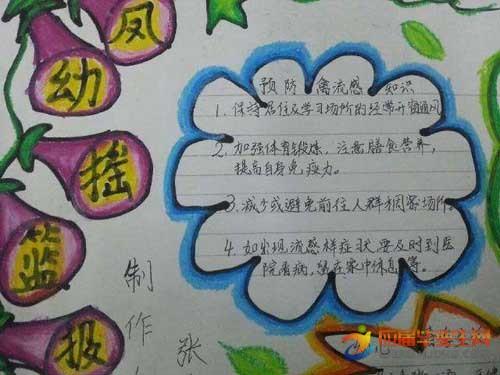 凤
幼
摇
篮
报
预防 禽流感 知识
1. 保持居住及学习场所的经常开窗通风
2. 加强体育锻炼，注意膳食营养，
提高自身免疫力。
3. 减少或避免前往人群稠密场所。
4. 如出现流感样症状要及时到医
院看病，在家中休息等。
制
作
张